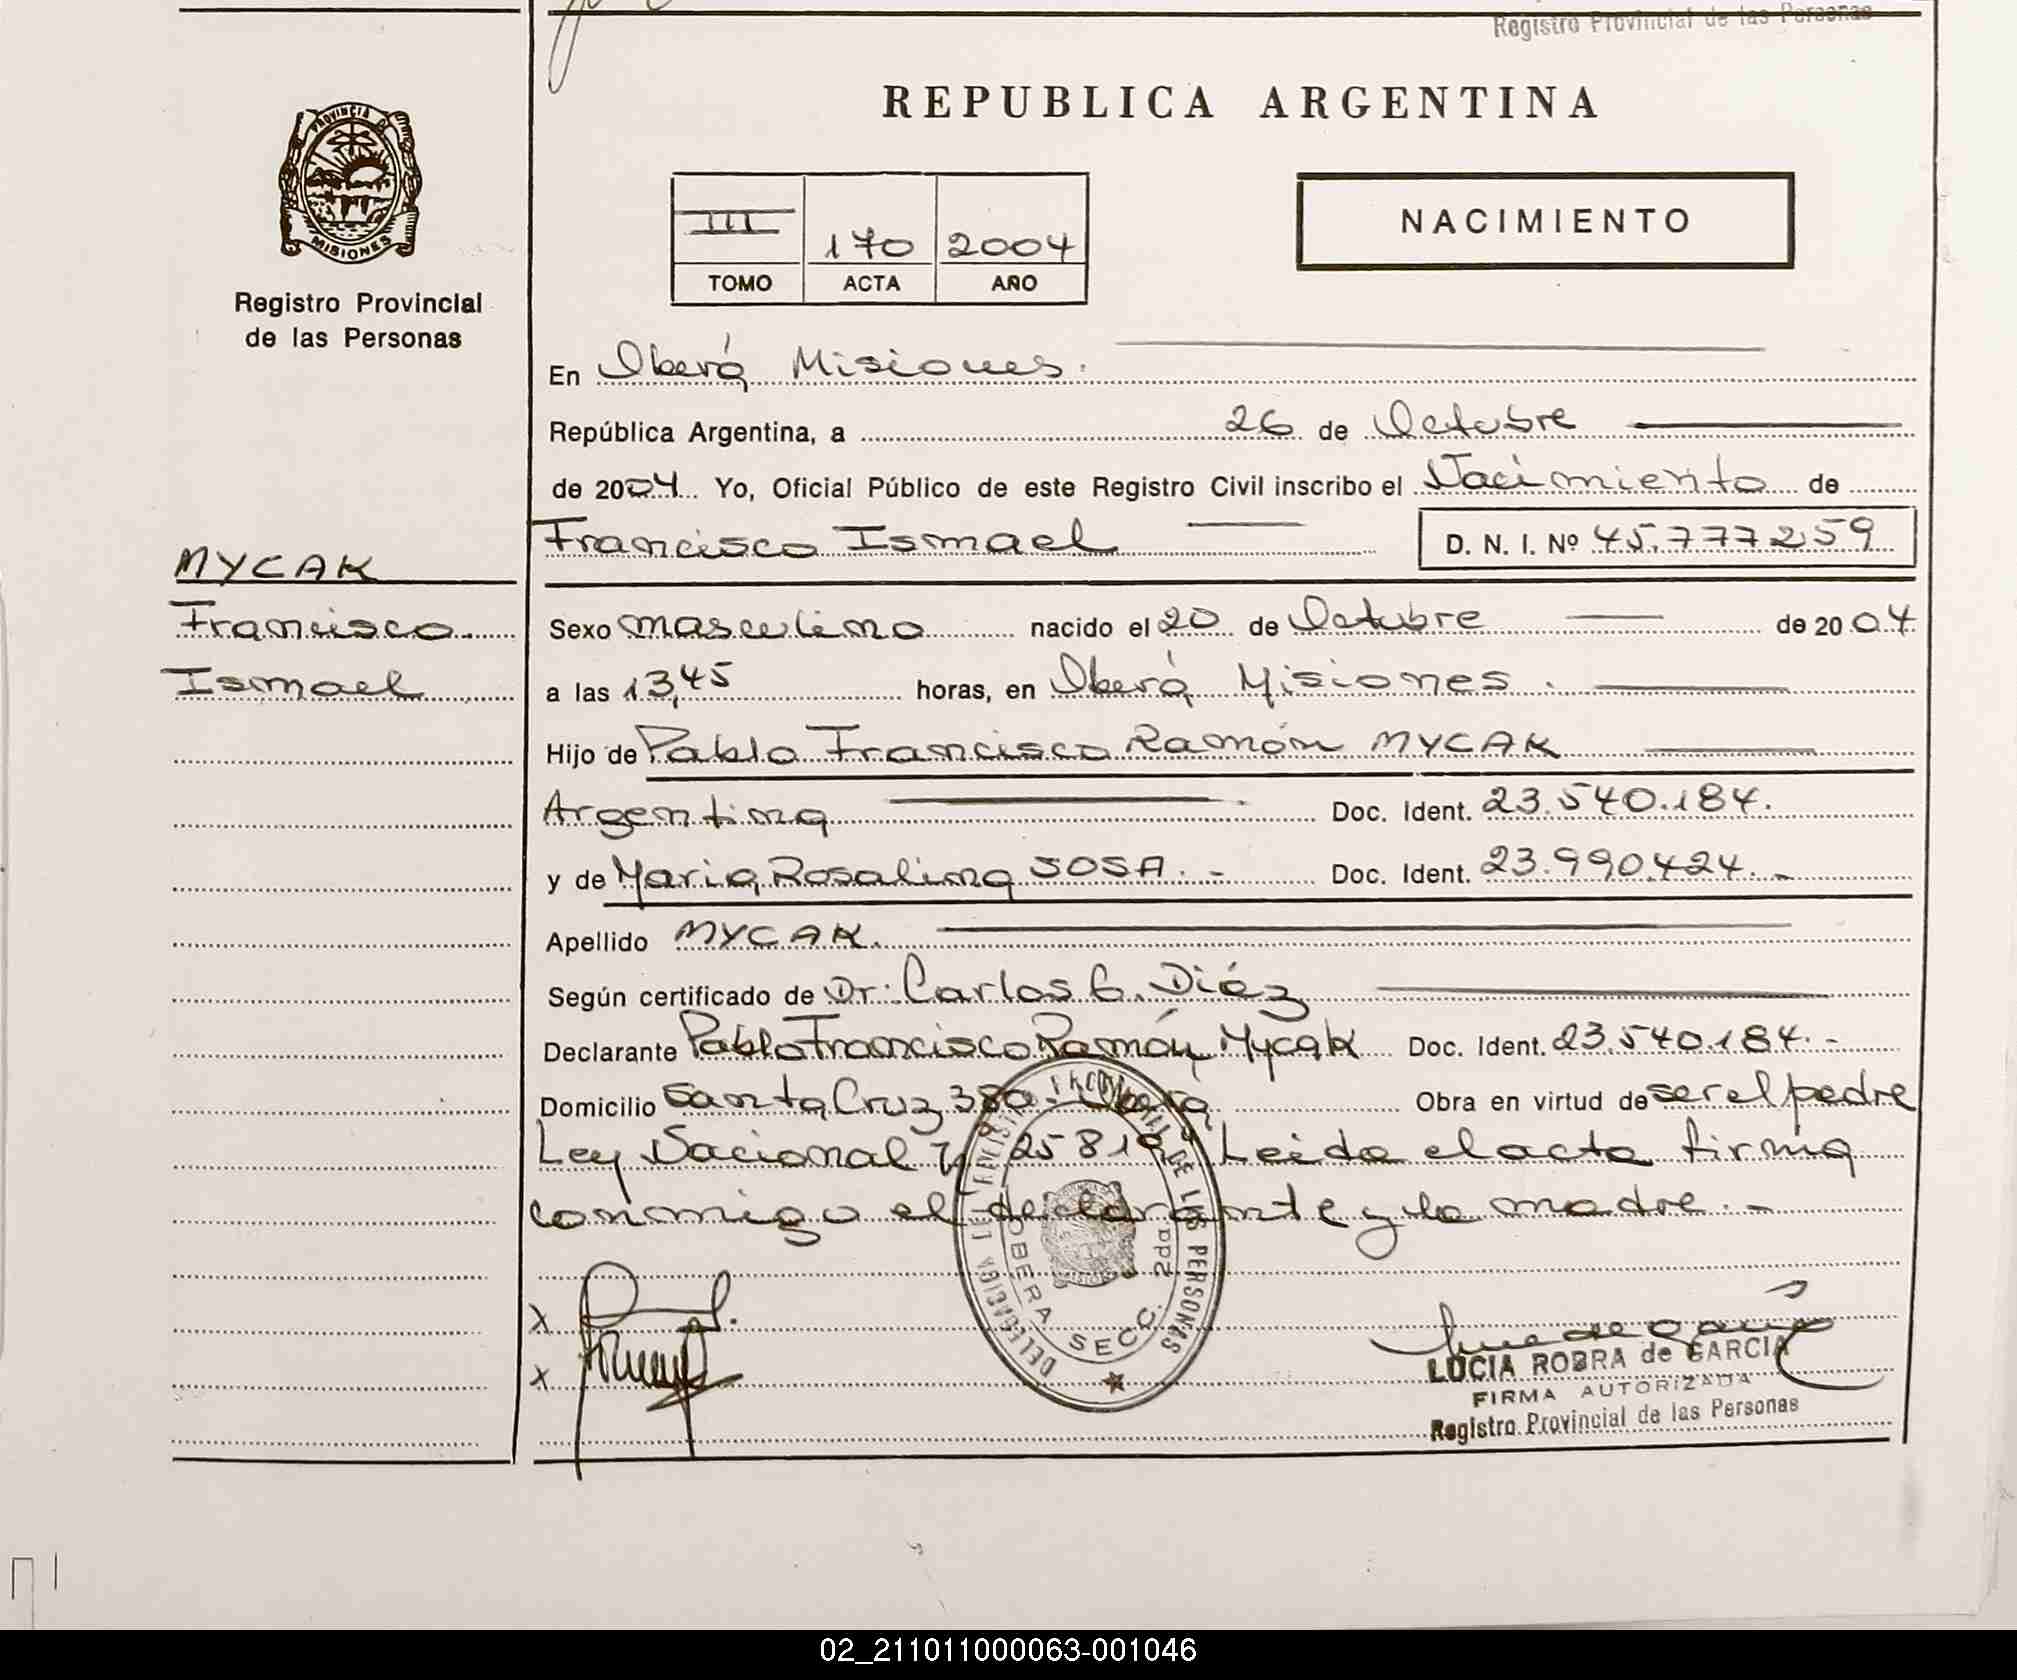 Registro Provincial de las Personas
REPUBLICA ARGENTINA
PROVINCIA DE
MISIONES
Registro Provincial
de las Personas
III 170 2004
TOMO ACTA AÑO
NACIMIENTO
En Oberá Misiones.
República Argentina, a 26 de Octubre
de 2004 Yo, Oficial Público de este Registro Civil inscribo el Nacimiento de
Francisco Ismael D. N. I. Nº 45.777259
MYCAK
Francisco
Ismael
Sexo masculino nacido el 20 de Octubre de 2004
a las 13,45 horas, en Oberá Misiones.
Hijo de Pablo Francisco Ramón MYCAK
Argentina Doc. Ident. 23.540.184.
y de Maria Rosalina SOSA.- Doc. Ident. 23.990.424.-
Apellido MYCAK.
Según certificado de Dr. Carlos G. Diéz
Declarante Pablo Francisco Ramón Mycak Doc. Ident. 23.540.184.-
Domicilio Santa Cruz 380 - Oberá Obra en virtud de ser el padre
Ley Nacional nº 25819 Leida el acta firma
conmigo el declarante y la madre.-
DELEGACION DEL REGISTRO PROVINCIAL DE LAS PERSONAS
OBERA SECC. 2da.
X
X
LUCIA ROBRA de GARCIA
FIRMA AUTORIZADA
Registro Provincial de las Personas
02_211011000063-001046